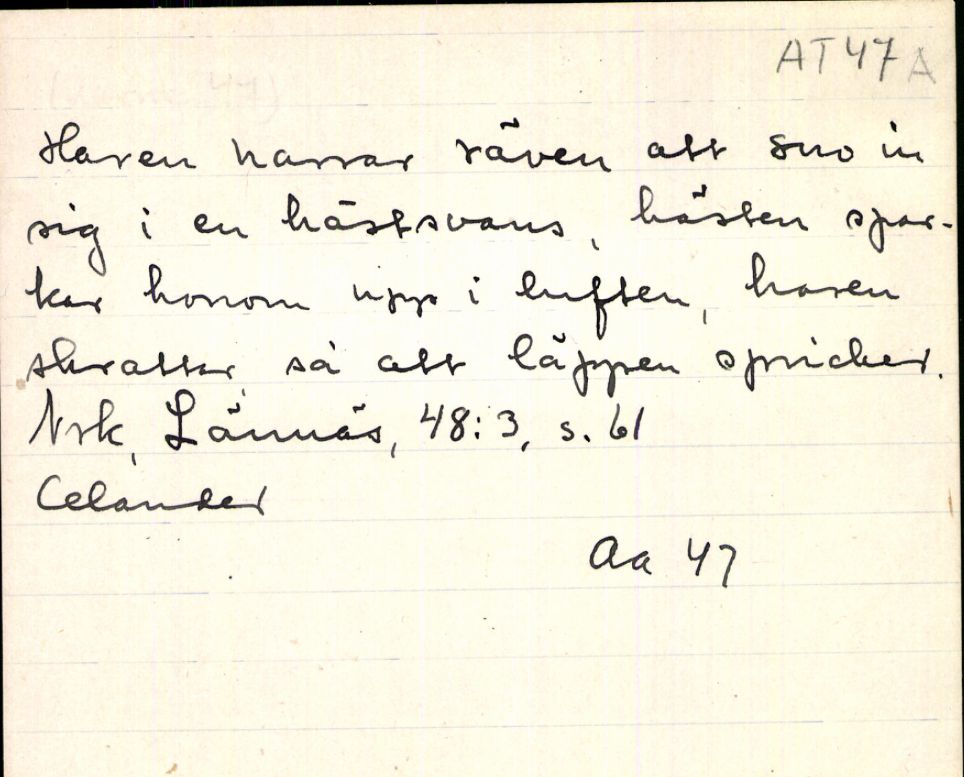 AT 47 A
Haren narrar räven att sno in
sig i en hästsvans, hästen spar-
kar honom upp i luften, haren
skrattar så att läppen spricker.
Nrk, Lännäs, 48:3, s. 61
Celander
Aa 47